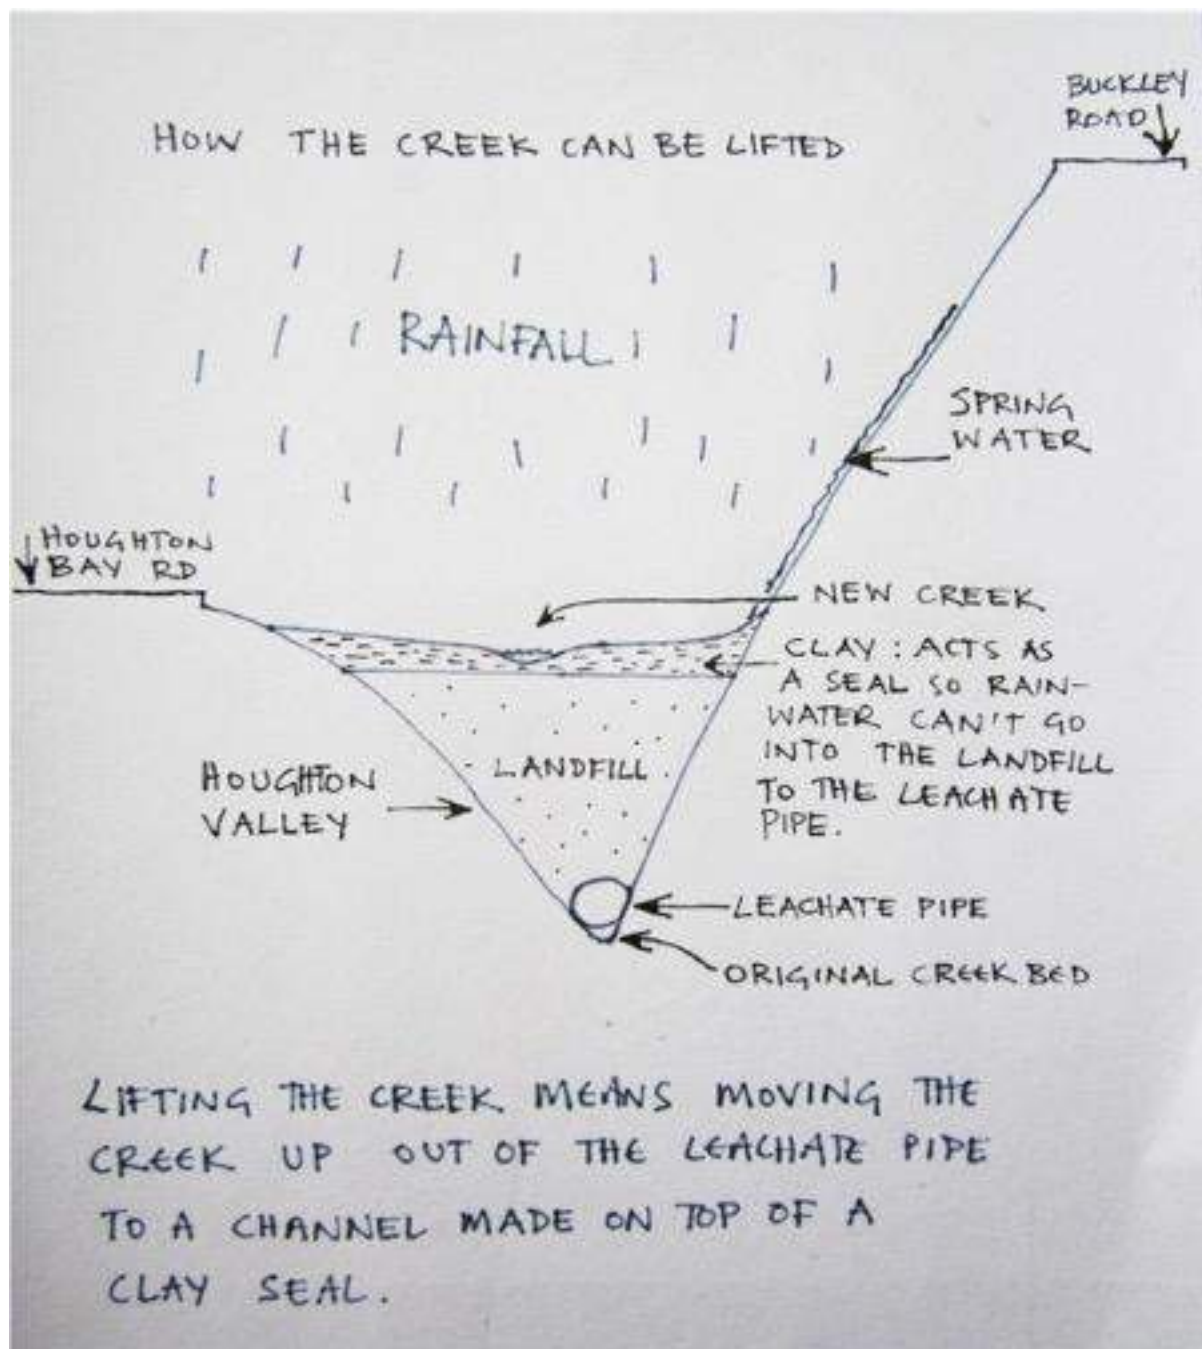 BUCKLEY
ROAD
HOW THE CREEK CAN BE LIFTED
RAINFALL
SPRING
WATER
HOUGHTON
BAY RD
NEW CREEK
CLAY : ACTS AS
A SEAL SO RAIN-
WATER CAN'T GO
INTO THE LANDFILL
TO THE LEACHATE
PIPE.
LANDFILL
HOUGHTON
VALLEY
LEACHATE PIPE
ORIGINAL CREEK BED
LIFTING THE CREEK MEANS MOVING THE
CREEK UP OUT OF THE LEACHATE PIPE
TO A CHANNEL MADE ON TOP OF A
CLAY SEAL.